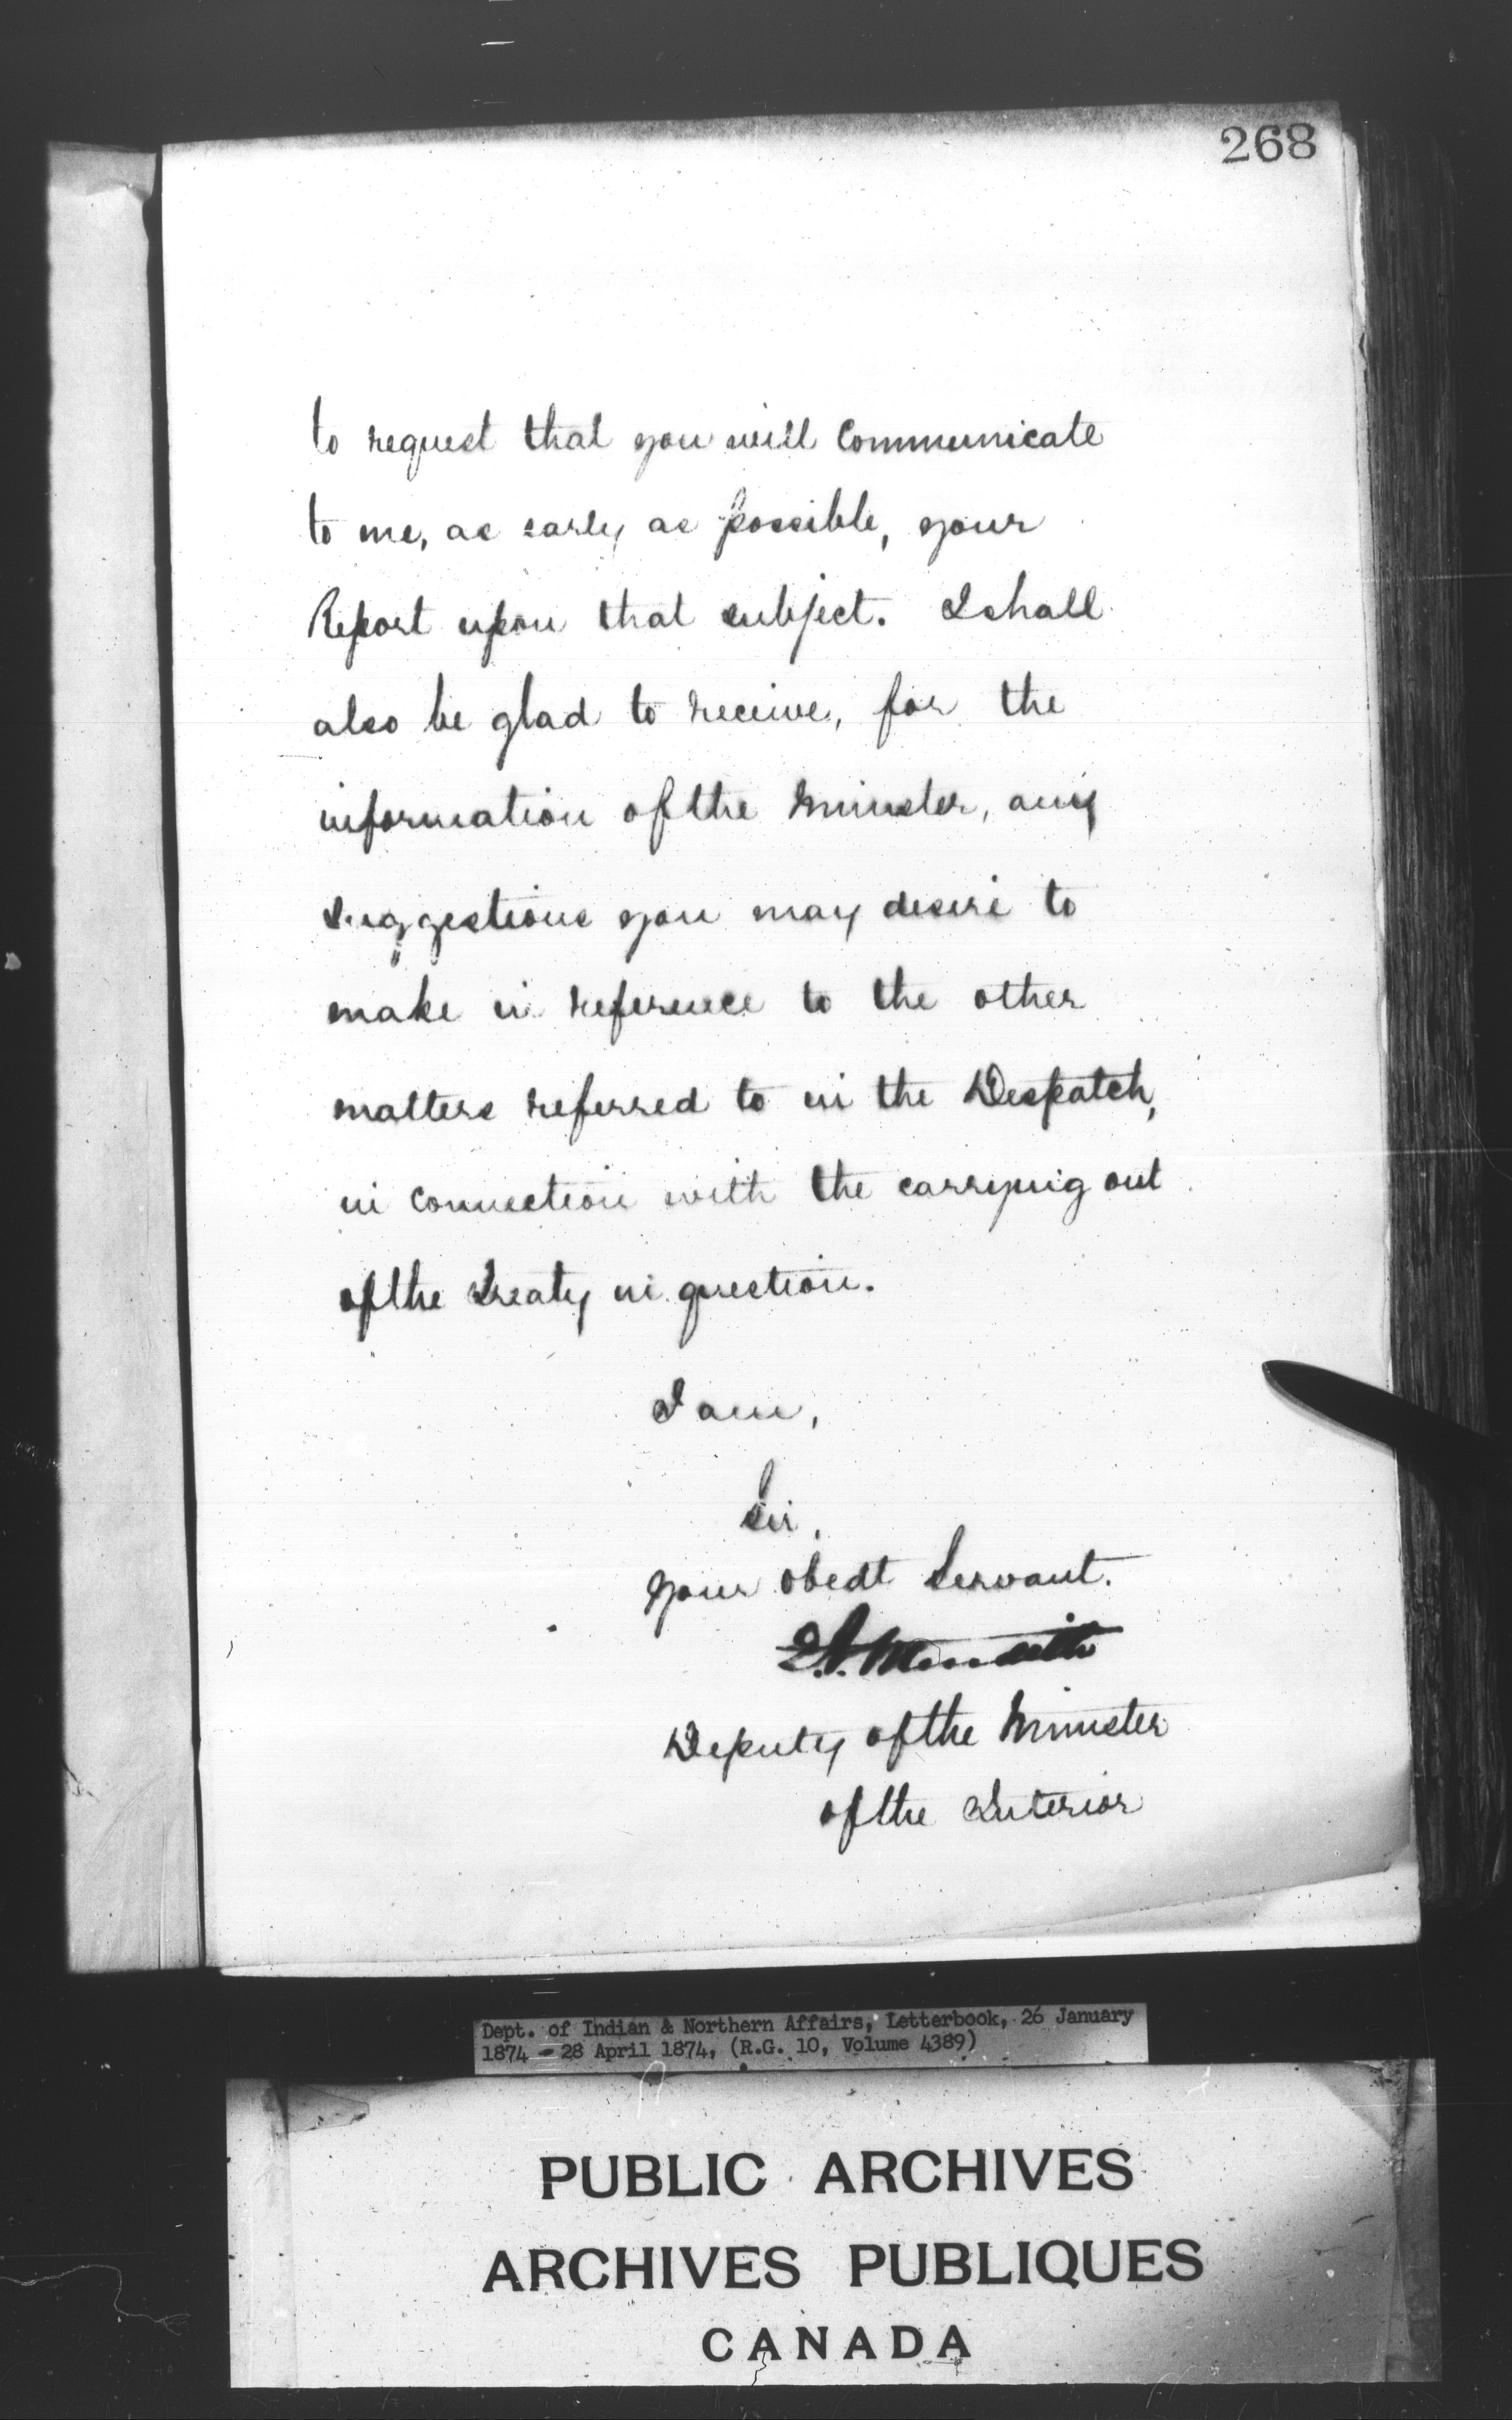 268
to request that you will Communicate
to me, as early as possible, your
Report upon that subject. I shall
also be glad to receive, for the
information of the Minister, any
suggestions you may desire to
make in reference to the other
matters referred to in the Despatch,
in connection with the carrying out
of the Treaty in question.
I am,
Sir,
Your obedt Servant.
E.A. Meredith
Deputy of the Minister
of the Interior
Dept. of Indian & Northern Affairs, Letterbook, 26 January
1874 - 28 April 1874, (R.G. 10, Volume 4389)
PUBLIC ARCHIVES
ARCHIVES PUBLIQUES
CANADA